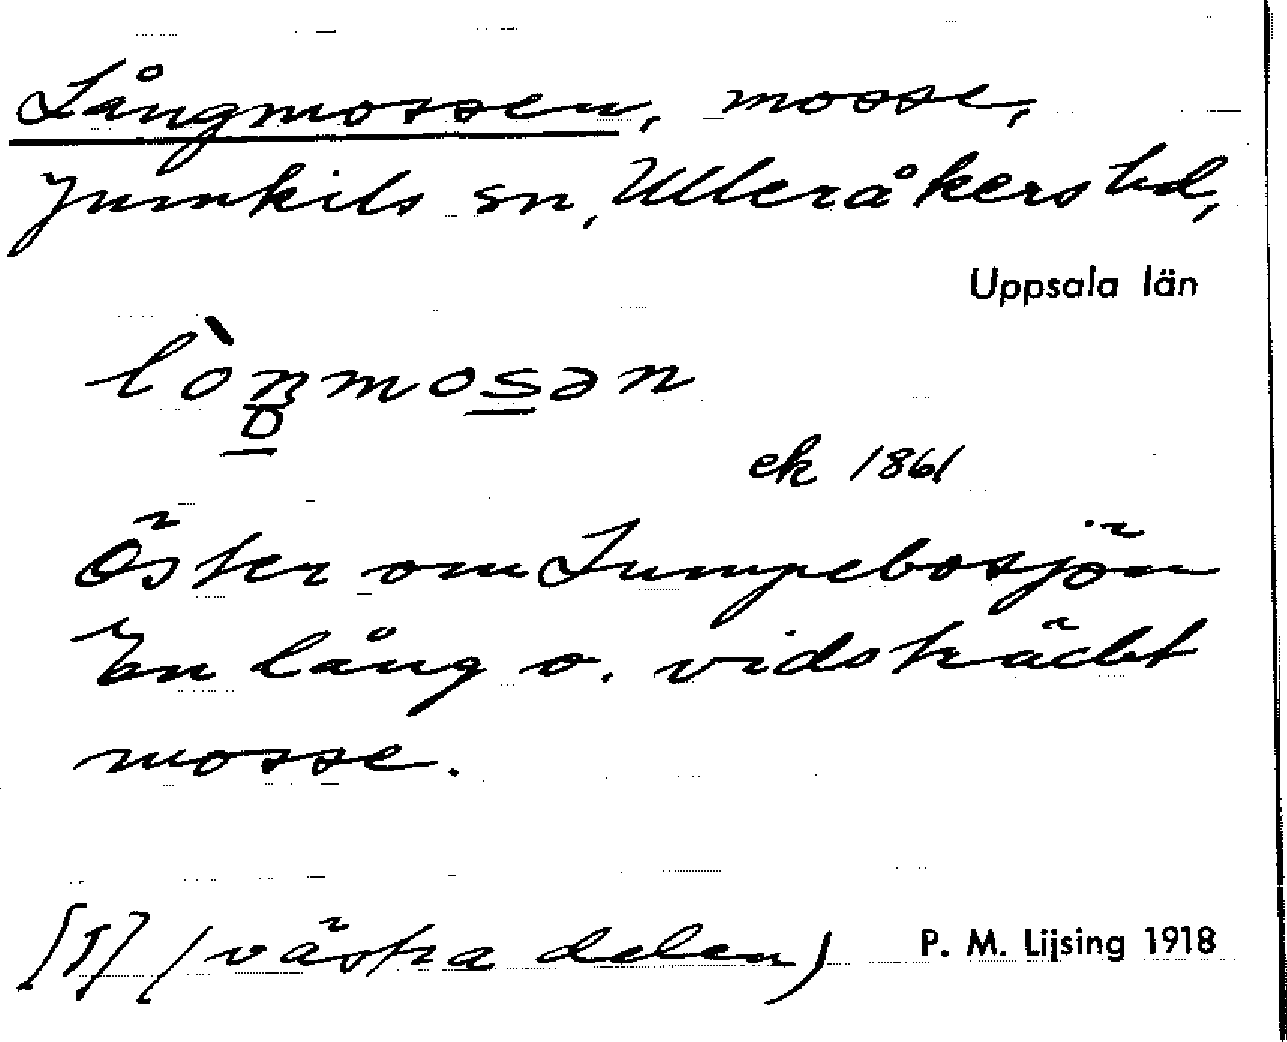 Långmossen, mosse,
Jumkils sn, Ulleråkers hd,
Uppsala län
lòn̥mosən
ek 1861
Öster om Lumpebosjön
En lång o. vidsträckt
mosse.
[T] (västra delen) P. M. Lijsing 1918